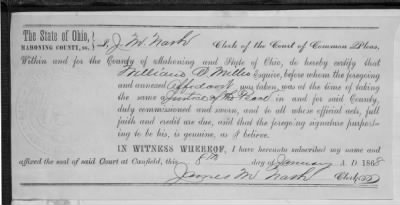 The State of Ohio,
MAHONING COUNTY, ss. I, J. M. Nash Clerk of the Court of Common Pleas,
Within and for the County of Mahoning and State of Ohio, do hereby certify that
William B. Mills Esquire, before whom the foregoing
and annexed Affidavit was taken, was at the time of taking
the same a Justice of the Peace in and for said County,
duly commissioned and sworn, and to all whose official acts, full
faith and credit are due, and that the foregoing signature purport-
ing to be his, is genuine, as I believe.
IN WITNESS WHEREOF, I have hereunto subscribed my name and
affixed the seal of said Court at Canfield, this 8th day of January A. D. 1868
James M Nash Clerk